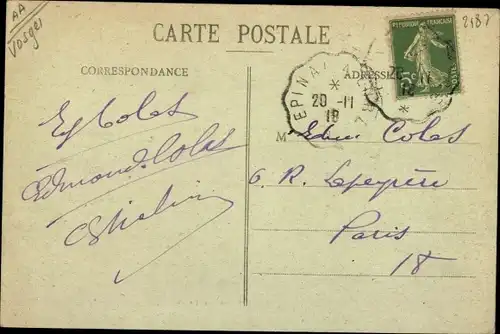 AA
Vosges
2187
CARTE POSTALE
CORRESPONDANCE
ADRESSE
REPUBLIQUE FRANÇAISE
5c
EPINAL
20-11
18
Edmond Colas
M Edm Colas
6. R. Lapeyrère
Paris
18